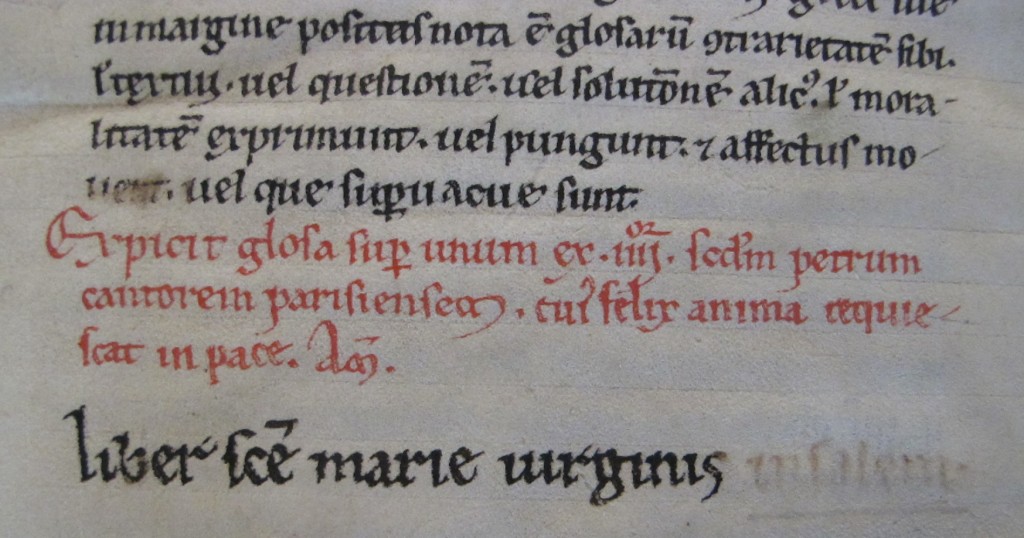 in margine positus nota ē glosarū ↄtrarietatē sibi.
ł textuj. uel questionē. uel solutōnē alicꝰ. ł mora-
litatē exprimunt. uel pungunt. ⁊ affectus mo-
uent. uel que suꝑuacue sunt.
Expicit glosa suꝑ unum ex .iiijᵒʳ. scdm petrum
cantorem parisiensem. cuiꝰ felix anima requie-
scat in pace. Am̄.
liber scē marie uirginis